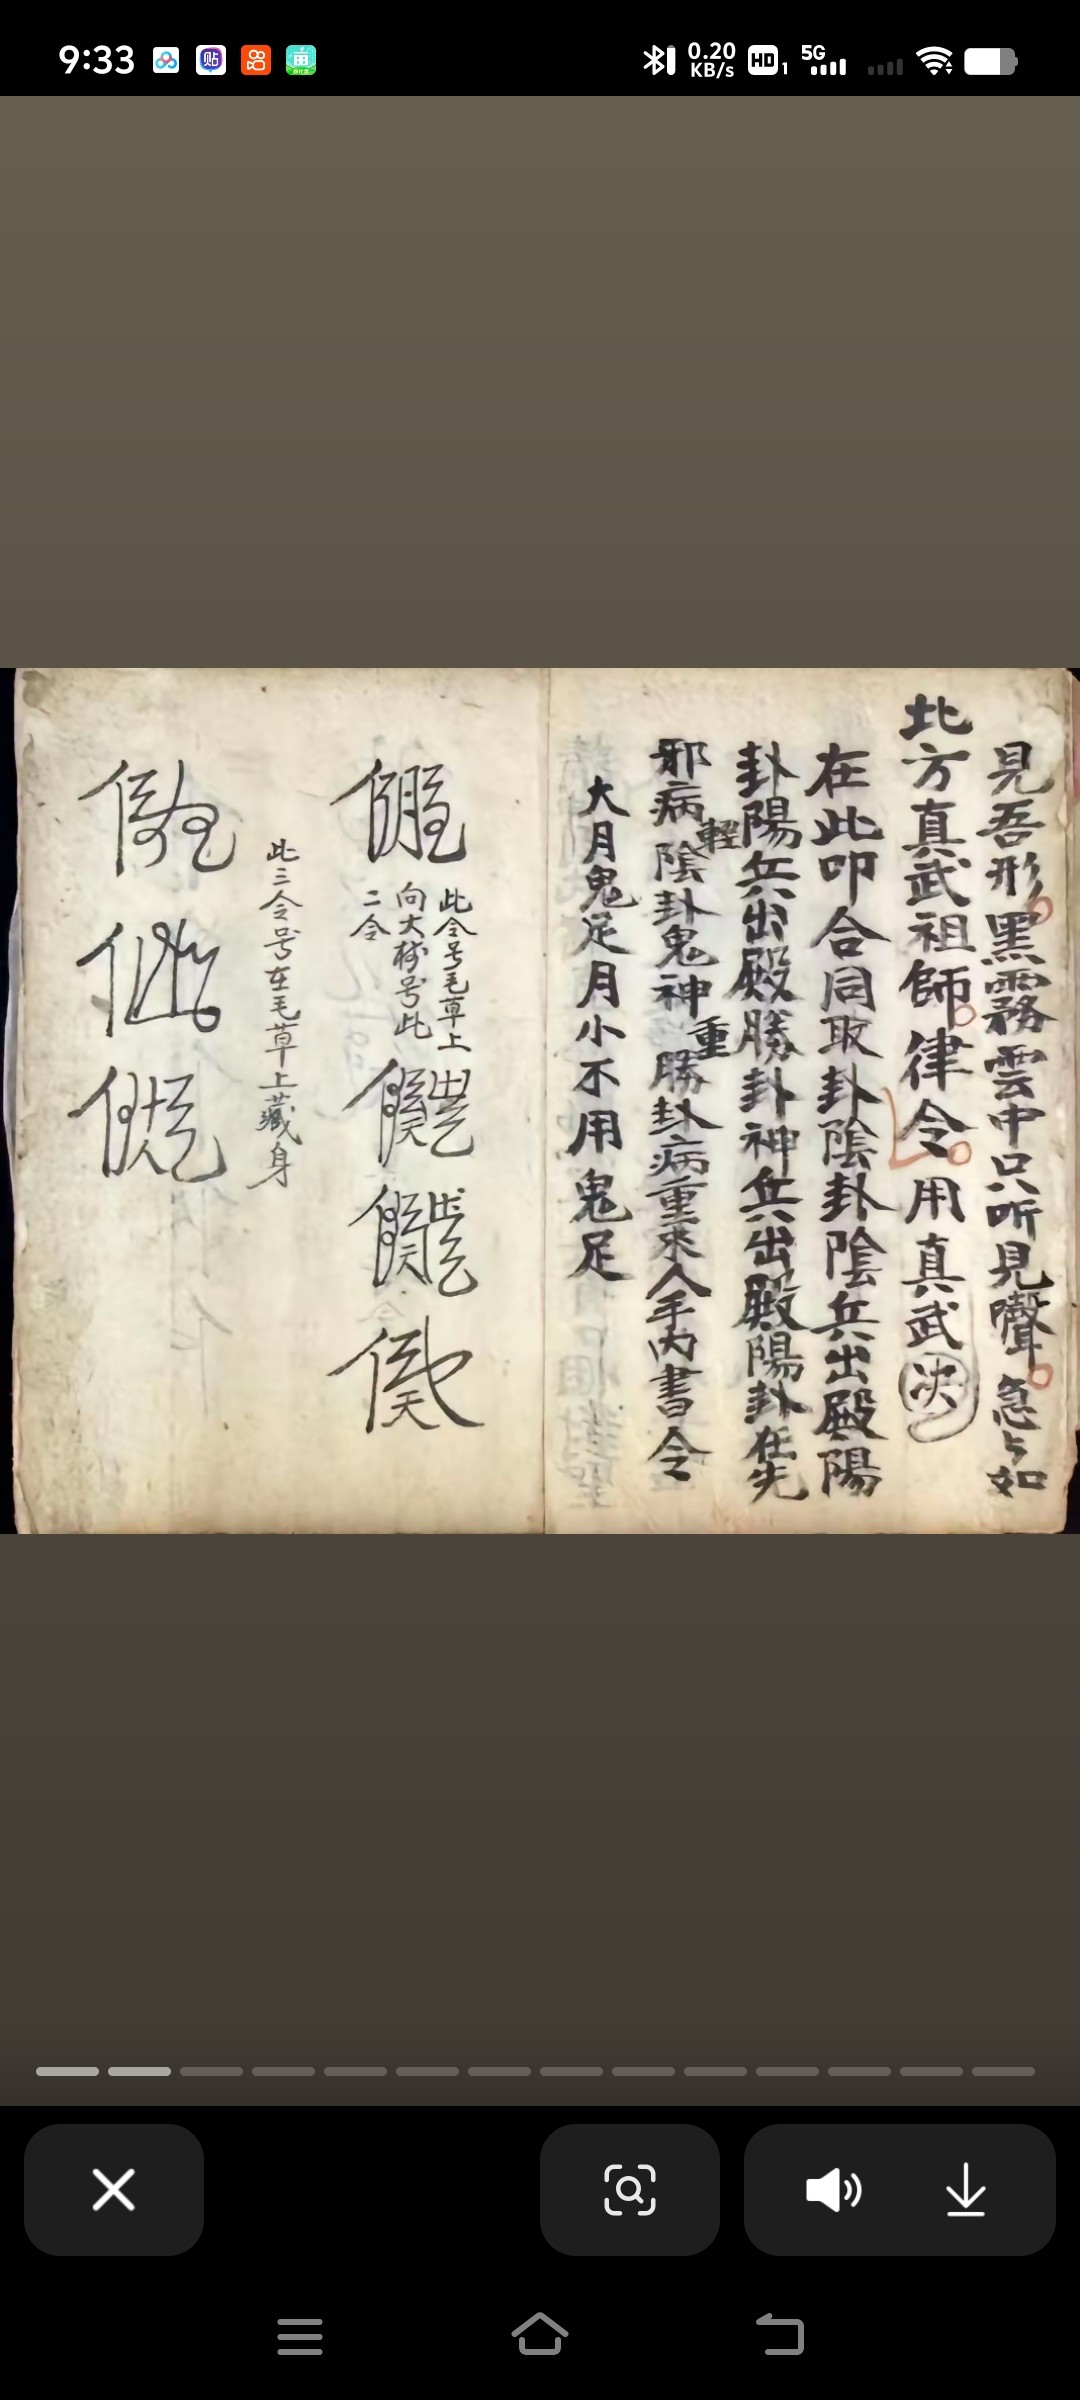 9:33
贴
0.20
KB/s
HD 1
5G
見吾形黑霧雲中只听見聲急々如
北方真武祖師律令用真武
在此叩合同取卦陰卦陰兵出殿陽
卦陽兵出殿勝卦神兵出殿陽卦在先
邪病輕陰卦鬼神重勝卦病重求人手內書令
大月鬼足月小不用鬼足
此令号毛草上
向大樹号此
二令
此三令号在毛草上藏身